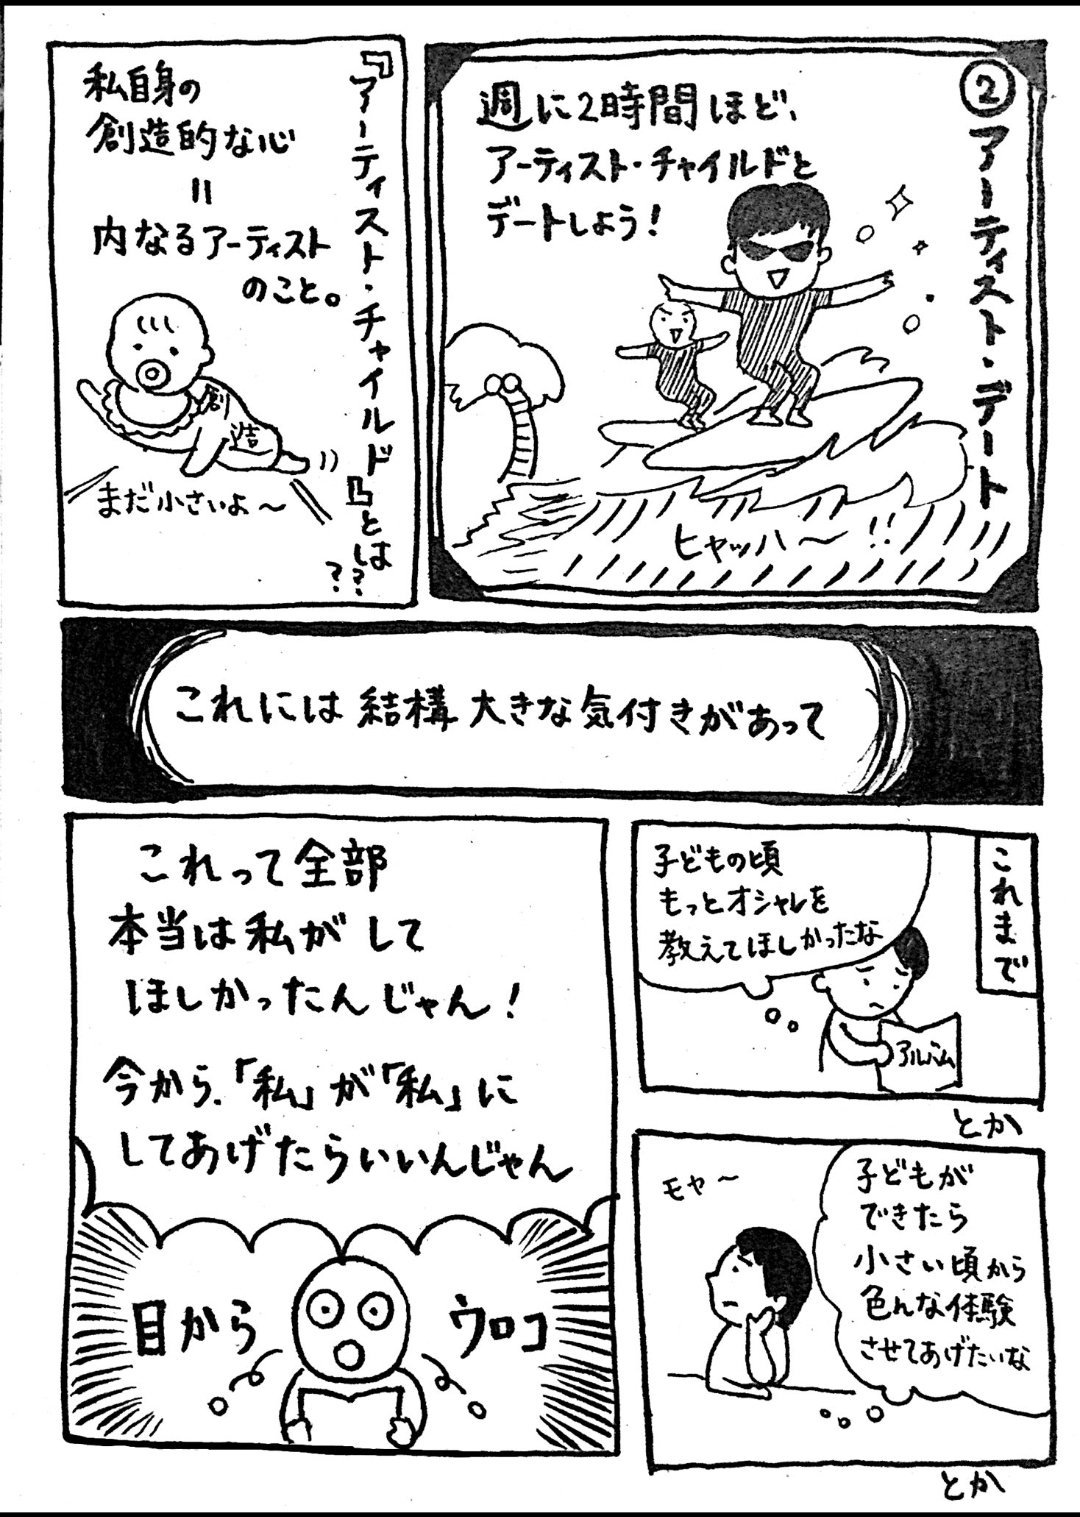 ②アーティスト・デート
週に2時間ほど、
アーティスト・チャイルドと
デートしよう！
ヒャッハ〜!!
『アーティスト・チャイルド』とは??
私自身の
創造的な心
＝
内なるアーティスト
のこと。
創造
まだ小さいよ〜
これには結構大きな気付きがあって
これまで
子どもの頃
もっとオシャレを
教えてほしかったな
アルバム
とか
子どもが
できたら
小さい頃から
色んな体験
させてあげたいな
モヤ〜
とか
これって全部
本当は私がして
ほしかったんじゃん！
今から、「私」が「私」に
してあげたらいいんじゃん
目から ウロコ